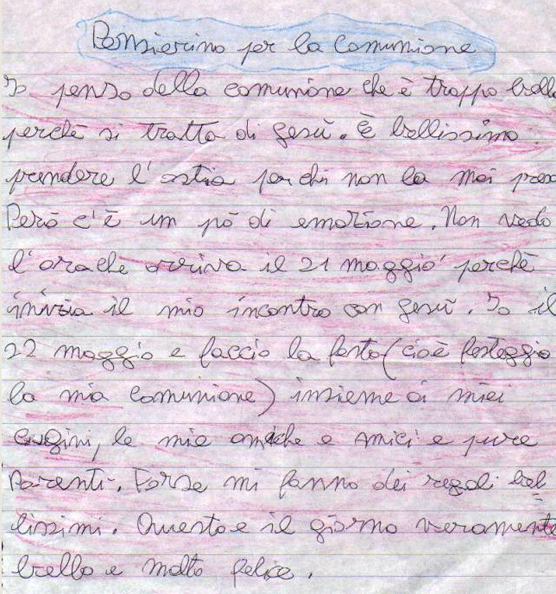 Pensierino per la Comunione
Io penso della comunione che è troppo bella
perchè si tratta di Gesù. È bellissimo
prendere l'ostia per chi non la mai presa
Però c'è un pò di emozione. Non vedo
l'ora che arriva il 21 maggio perchè
inizia il mio incontro con Gesù. Io il
22 maggio e faccio la festa (cioè festeggio
la mia Comunione) insieme ai miei
cugini, le mie amiche e amici e pure
parenti. Forse mi fanno dei regali bel
lissimi. Questo e il giorno veramente
bello e molto felice.